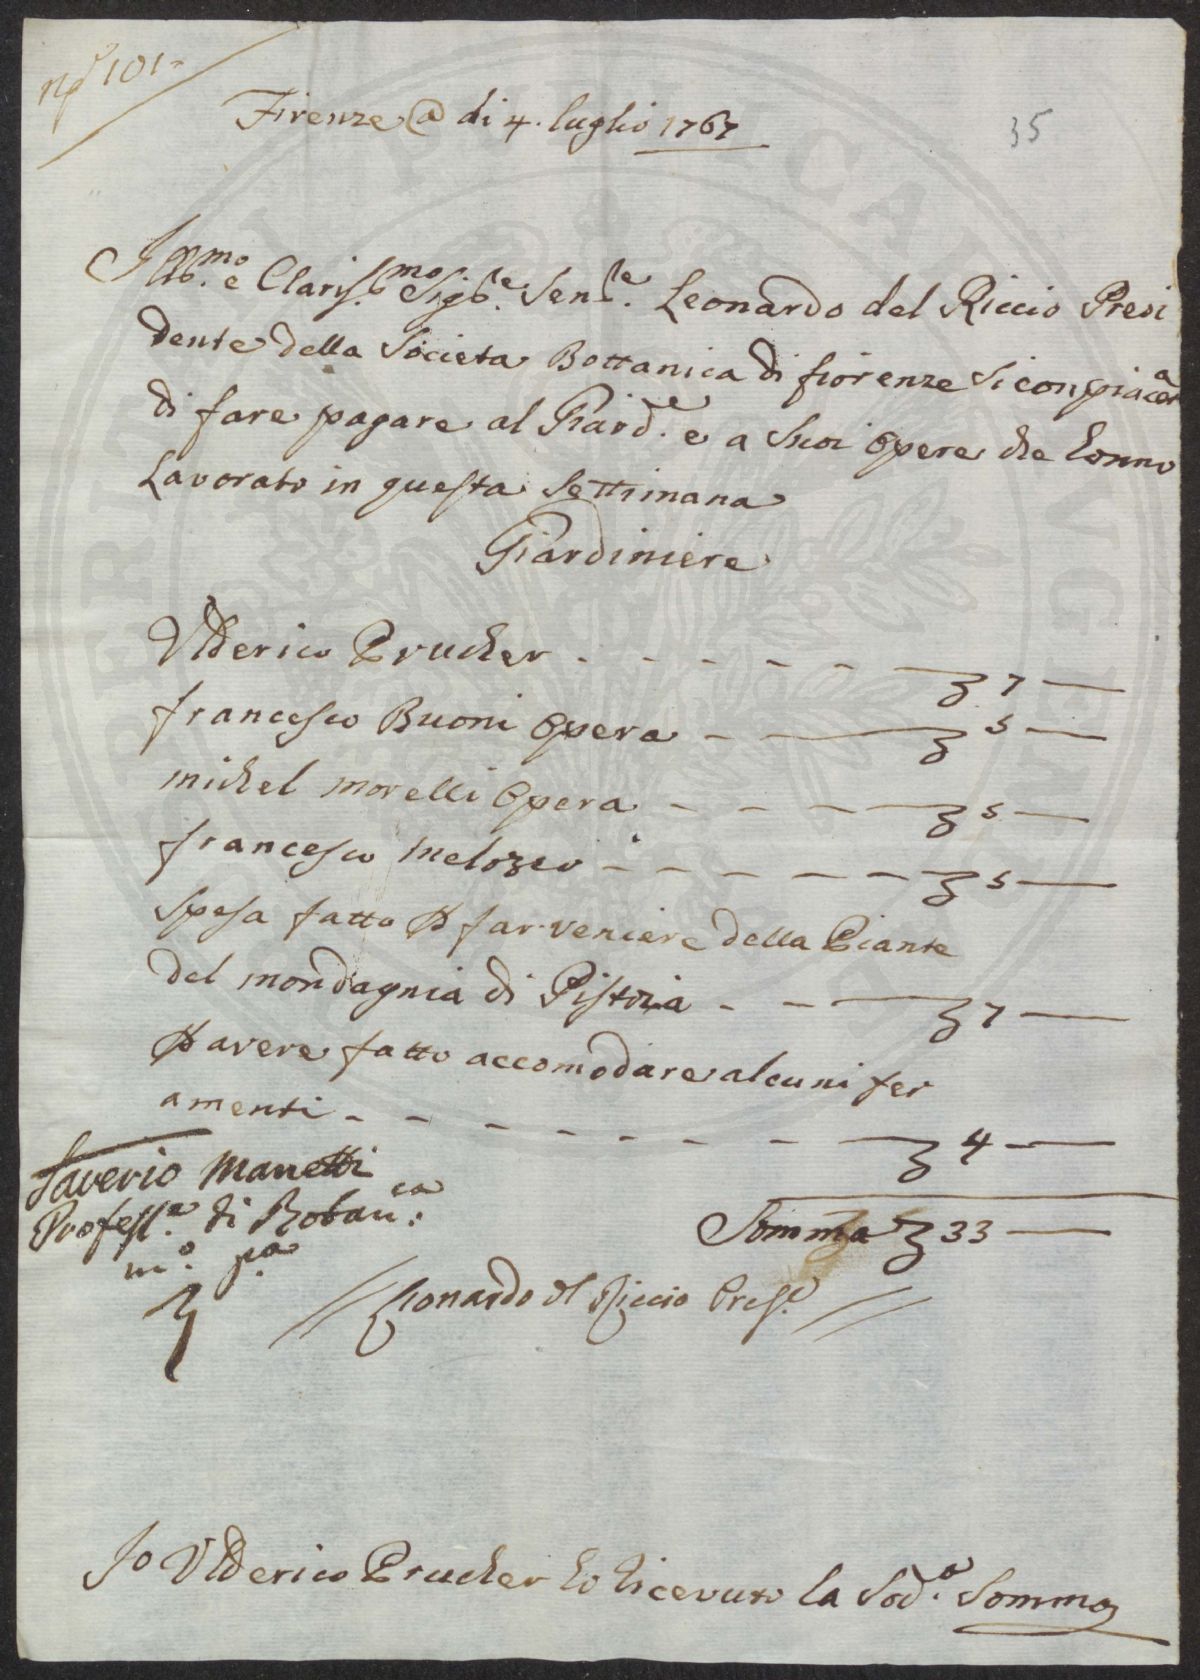 nº 101
Firenze @ di 4. luglio 1767
35
Illmo. e Clarissmo Sigre. Senre. Leonardo del Riccio Presi
dente della Societa Bottanica di fiorenze si conpiacera
di fare pagare al Giarde. e a Suoi opere che Eonno
Lavorato in questa Settimana
Giardiniere
Ulderico Prucher - - - - - 7 —
francesco Buoni opera - - 5 —
michel morelli opera - - - 5 —
francesco melozzo - - - - - 5 —
Spesa fatta P far veniere della Piante
del mondagnia di Pistoia - - 7 —
P avere fatto accomodare alcuni fer
amenti - - - - - - - 4 —
Saverio Manetti
Professe. di Botanca.
mo. pa.
Somma 33 —
Leonardo del Riccio Prese.
Io Ulderico Prucher Eo Ricevuto la Soda. Somma